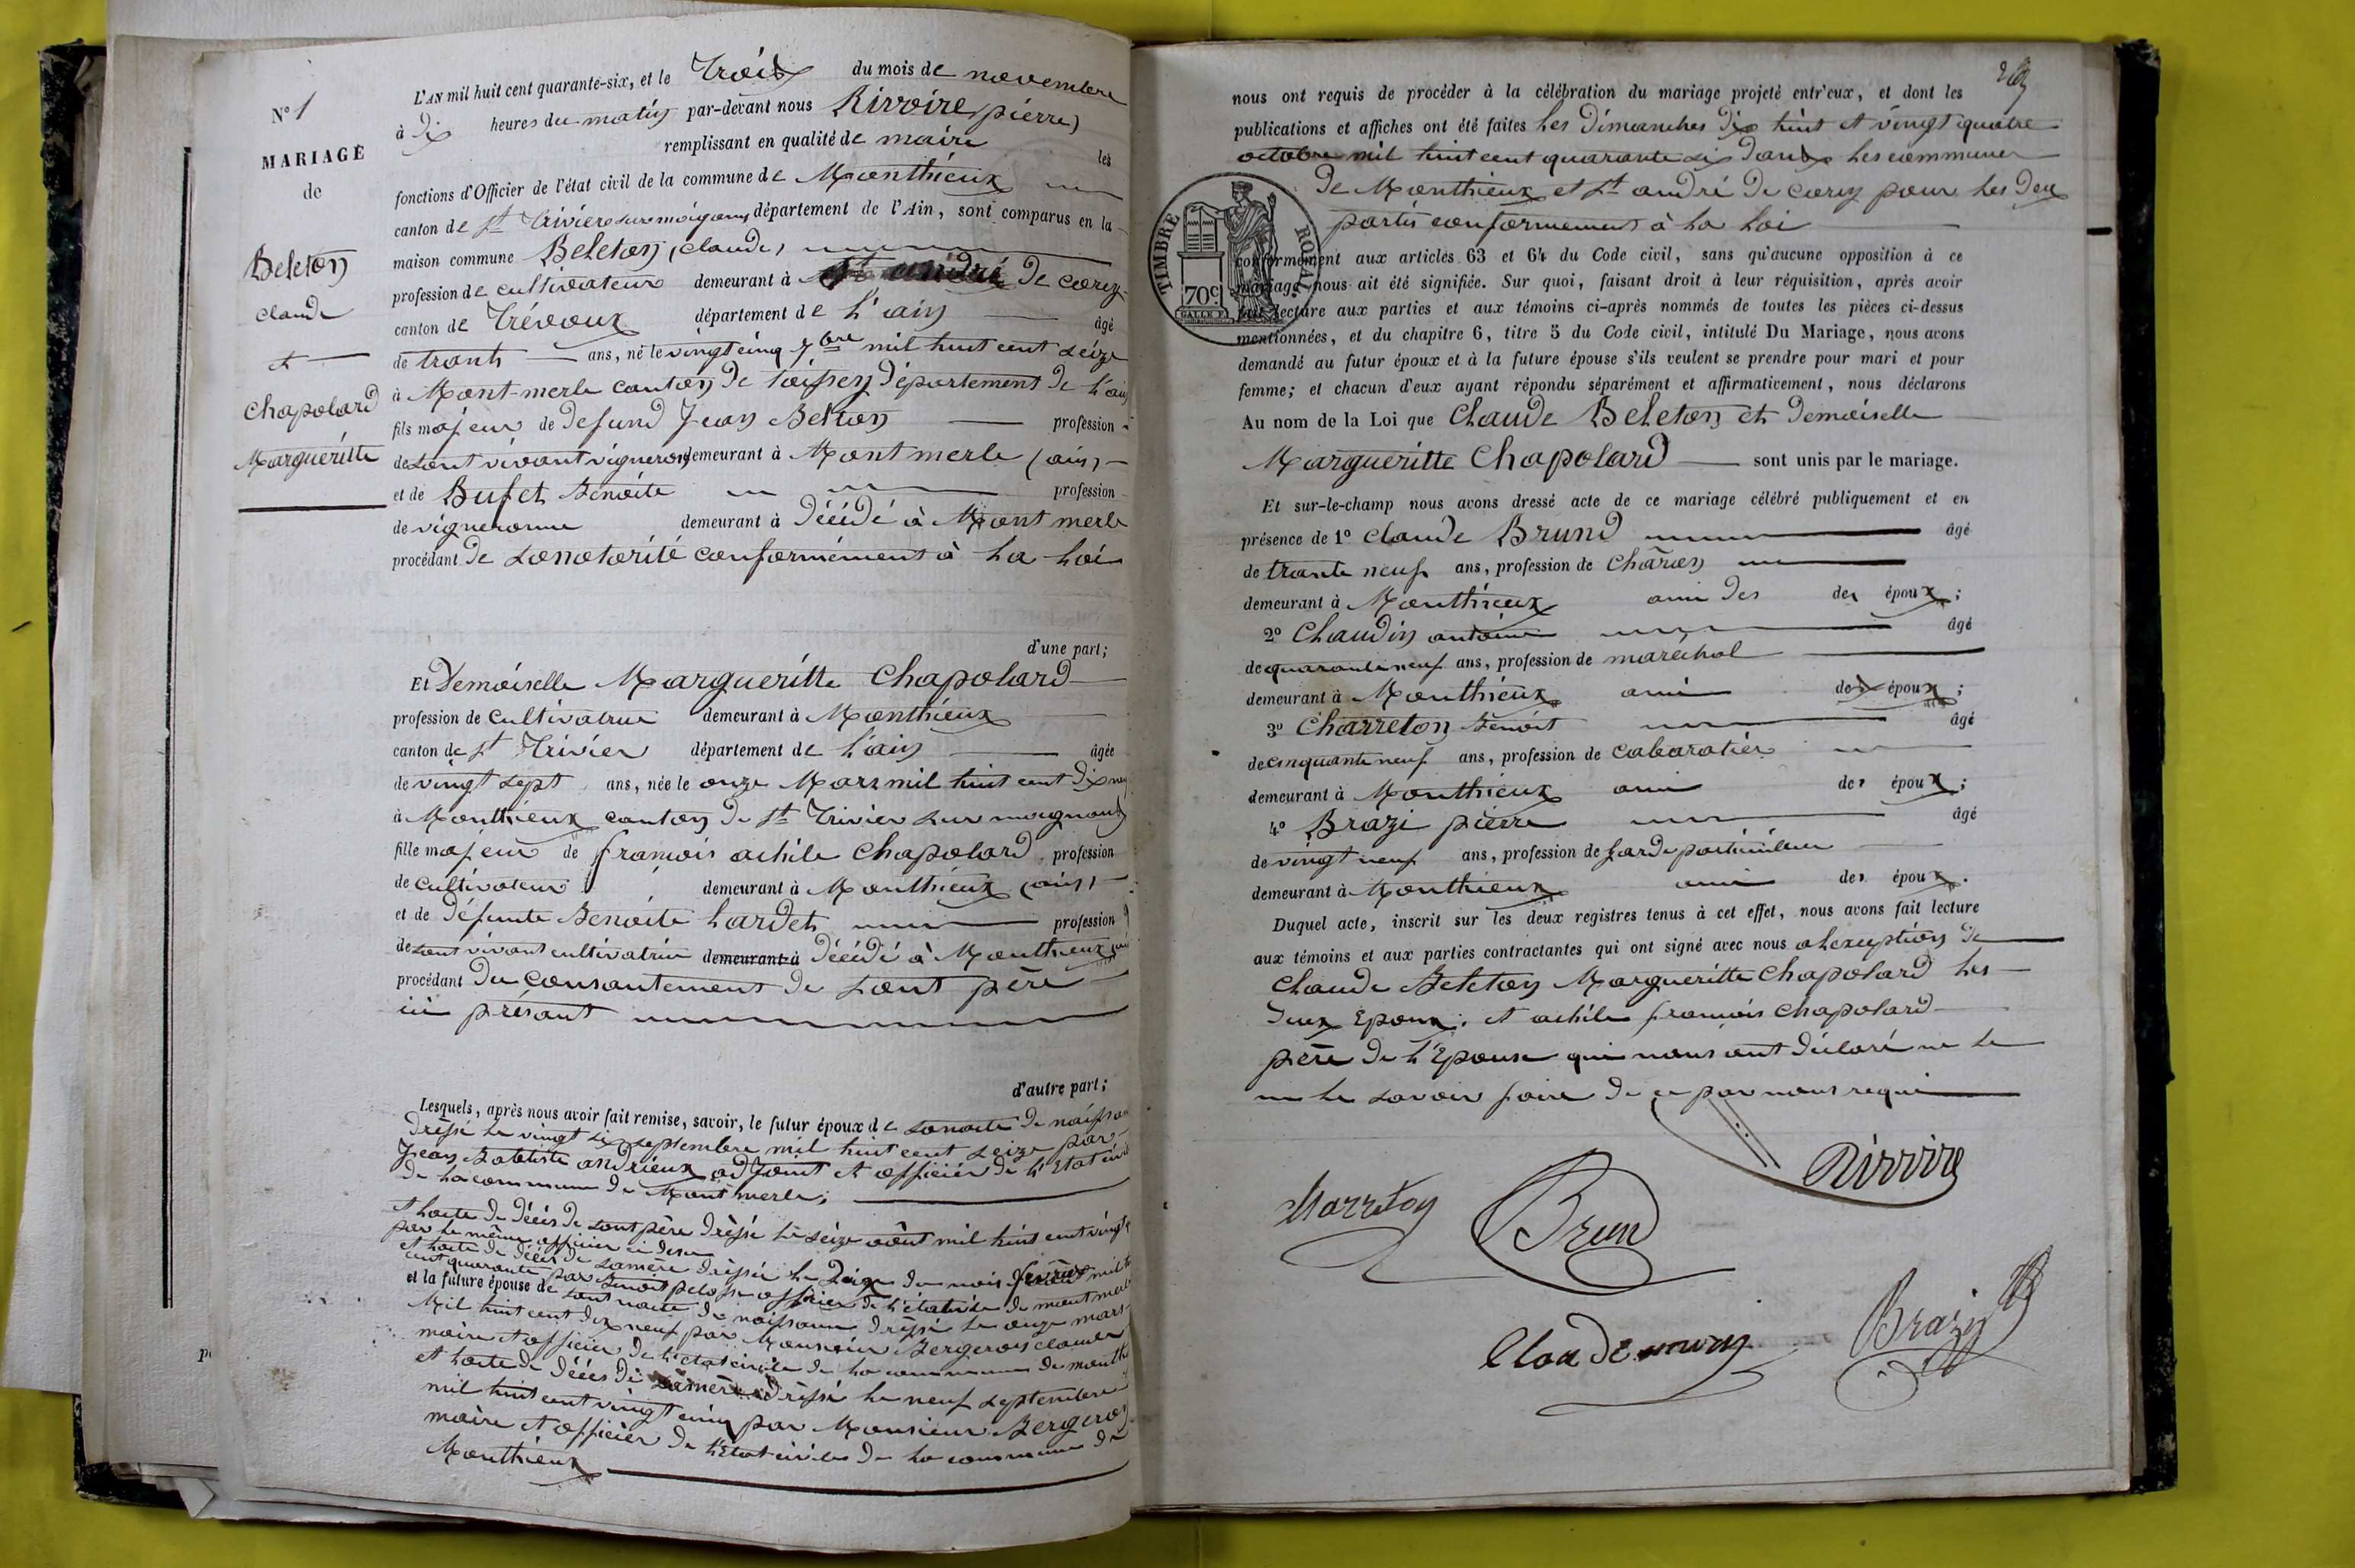 N° 1
MARIAGE
de
Beleton
claude
et
Chapolard
Margueritte
L'AN mil huit cent quarante-six, et le Trois du mois de novembre
à dix heures du matin par-devant nous Rivoire (pierre)
remplissant en qualité de maire les
fonctions d'Officier de l'état civil de la commune de Monthieux
canton de St Trivier sur moignans département de l'Ain, sont comparus en la
maison commune Beleton (claude)
profession de cultivateur demeurant à St andré De corcy
canton de Trévoux département de l'ain âgé
de trante ans, né le vingt cinq 7bre mil huit cent seize
à Mont-merle canton De toissey Département De l'ain
fils majeur de Defund Jean Beleton profession
de sont vivant vigneron demeurant à Montmerle (ain)
et de Bufet Benoite profession
de vigneronne demeurant à Décédé à Mont merle
procédant De sonotorité conformément à la loi
d'une part;
Et Demoiselle Margueritte Chapolard
profession de cultivatrice demeurant à Monthieux
canton de St Trivier département de l'ain âgée
de vingt sept ans, née le onze Mars mil huit cent dix neuf
à Monthieux canton De St Trivier sur moignans
fille majeur de françois achile Chapolard profession
de cultivateur demeurant à Monthieux (ain)
et de Défunte Benoite Lardet profession
de sont vivant cultivatrice demeurant à Décédé à Monthieux
procédant Du consantement De sont père
ici présant
d'autre part;
Lesquels, après nous avoir fait remise, savoir, le futur époux de sonacte De naissan
Dressé le vingt six septembre mil huit cent seize par
Jean Babtiste andrieux adjoint et officier De l'Etat civil
De la commune De Mont merle;
et lacte De Décés De sont père Dréssé le seize aôut mil huit cent vingt
par le même officier ci desu
et lacte De Décés De samère Dréssé le Deize du mois février mil
cent quarante par Benoit officier De l'état De mont merle
et la future épouse de sont nacte De naissance Dréssé le onze mars
Mil huit cent dix neuf par Monsieur Bergeron
maire et officier De l'etat civile De la commune De
et lacte De Décés De samère Dréssé le neuf septembre
mil huit cent vingt cinq par Monsieur Bergeron
maire et officier De l'Etat civile De la commune De
Monthieux
nous ont requis de procéder à la célébration du mariage projeté entr'eux, et dont les
publications et affiches ont été faites les Dimanches Dix huit et vingt quatre
octobre mil huit cent quarante six Dans les communes
De Monthieux et St andré De corcy pour les Deux
partis conformement à la loi
TIMBRE ROYAL
70c
conformément aux articles 63 et 64 du Code civil, sans qu'aucune opposition à ce
mariage nous ait été signifiée. Sur quoi, faisant droit à leur réquisition, après avoir
fait lecture aux parties et aux témoins ci-après nommés de toutes les pièces ci-dessus
mentionnées, et du chapitre 6, titre 5 du Code civil, intitulé Du Mariage, nous avons
demandé au futur époux et à la future épouse s'ils veulent se prendre pour mari et pour
femme; et chacun d'eux ayant répondu séparément et affirmativement, nous déclarons
Au nom de la Loi que Claude Beleton et Demoiselle
Margueritte Chapolard sont unis par le mariage.
Et sur-le-champ nous avons dressé acte de ce mariage célébré publiquement et en
présence de 1° claude Brund âgé
de trante neuf ans, profession de Charon
demeurant à Monthieux ami Des des époux;
2° Chaudin antoine âgé
de quarante neuf ans, profession de maréchal
demeurant à Monthieux ami des époux;
3° Charreton Benoit âgé
de cinquante neuf ans, profession de cabaratier
demeurant à Monthieux ami des époux;
4° Brazi pierre âgé
de vingt neuf ans, profession de garde particulier
demeurant à Monthieux ami des époux.
Duquel acte, inscrit sur les deux registres tenus à cet effet, nous avons fait lecture
aux témoins et aux parties contractantes qui ont signé avec nous alexception De
Claude Beleton Margueritte Chapolard les
Deux Epoux; et achile françois Chapolard
père De l'Epouse qui nous ont Déclaré ne le
ne le savoir faire De ce par nous requi
Rivoire
Charreton
Brun
Brazy